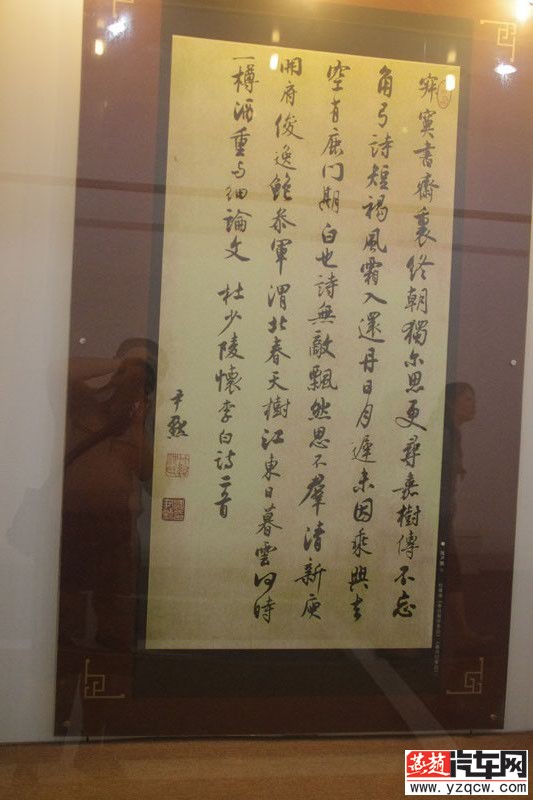 寂寞書齋裏終朝獨尔思更尋嘉樹傳不忘
角弓詩短褐風霜入還丹日月遲未因乘興去
空有鹿門期白也詩無敵飄然思不羣清新庾
開府俊逸鮑叅軍渭北春天樹江東日暮雲何時
一樽酒重与細論文 杜少陵懷李白詩二首
尹默
燕趙汽车网
www.yzqcw.com